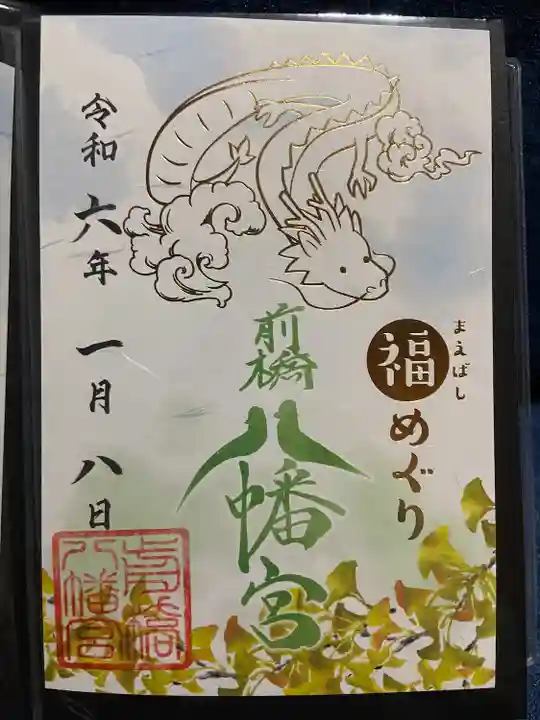 まえばし
福めぐり
前橋
八幡宮
令和六年 一月八日
前橋
八幡宮